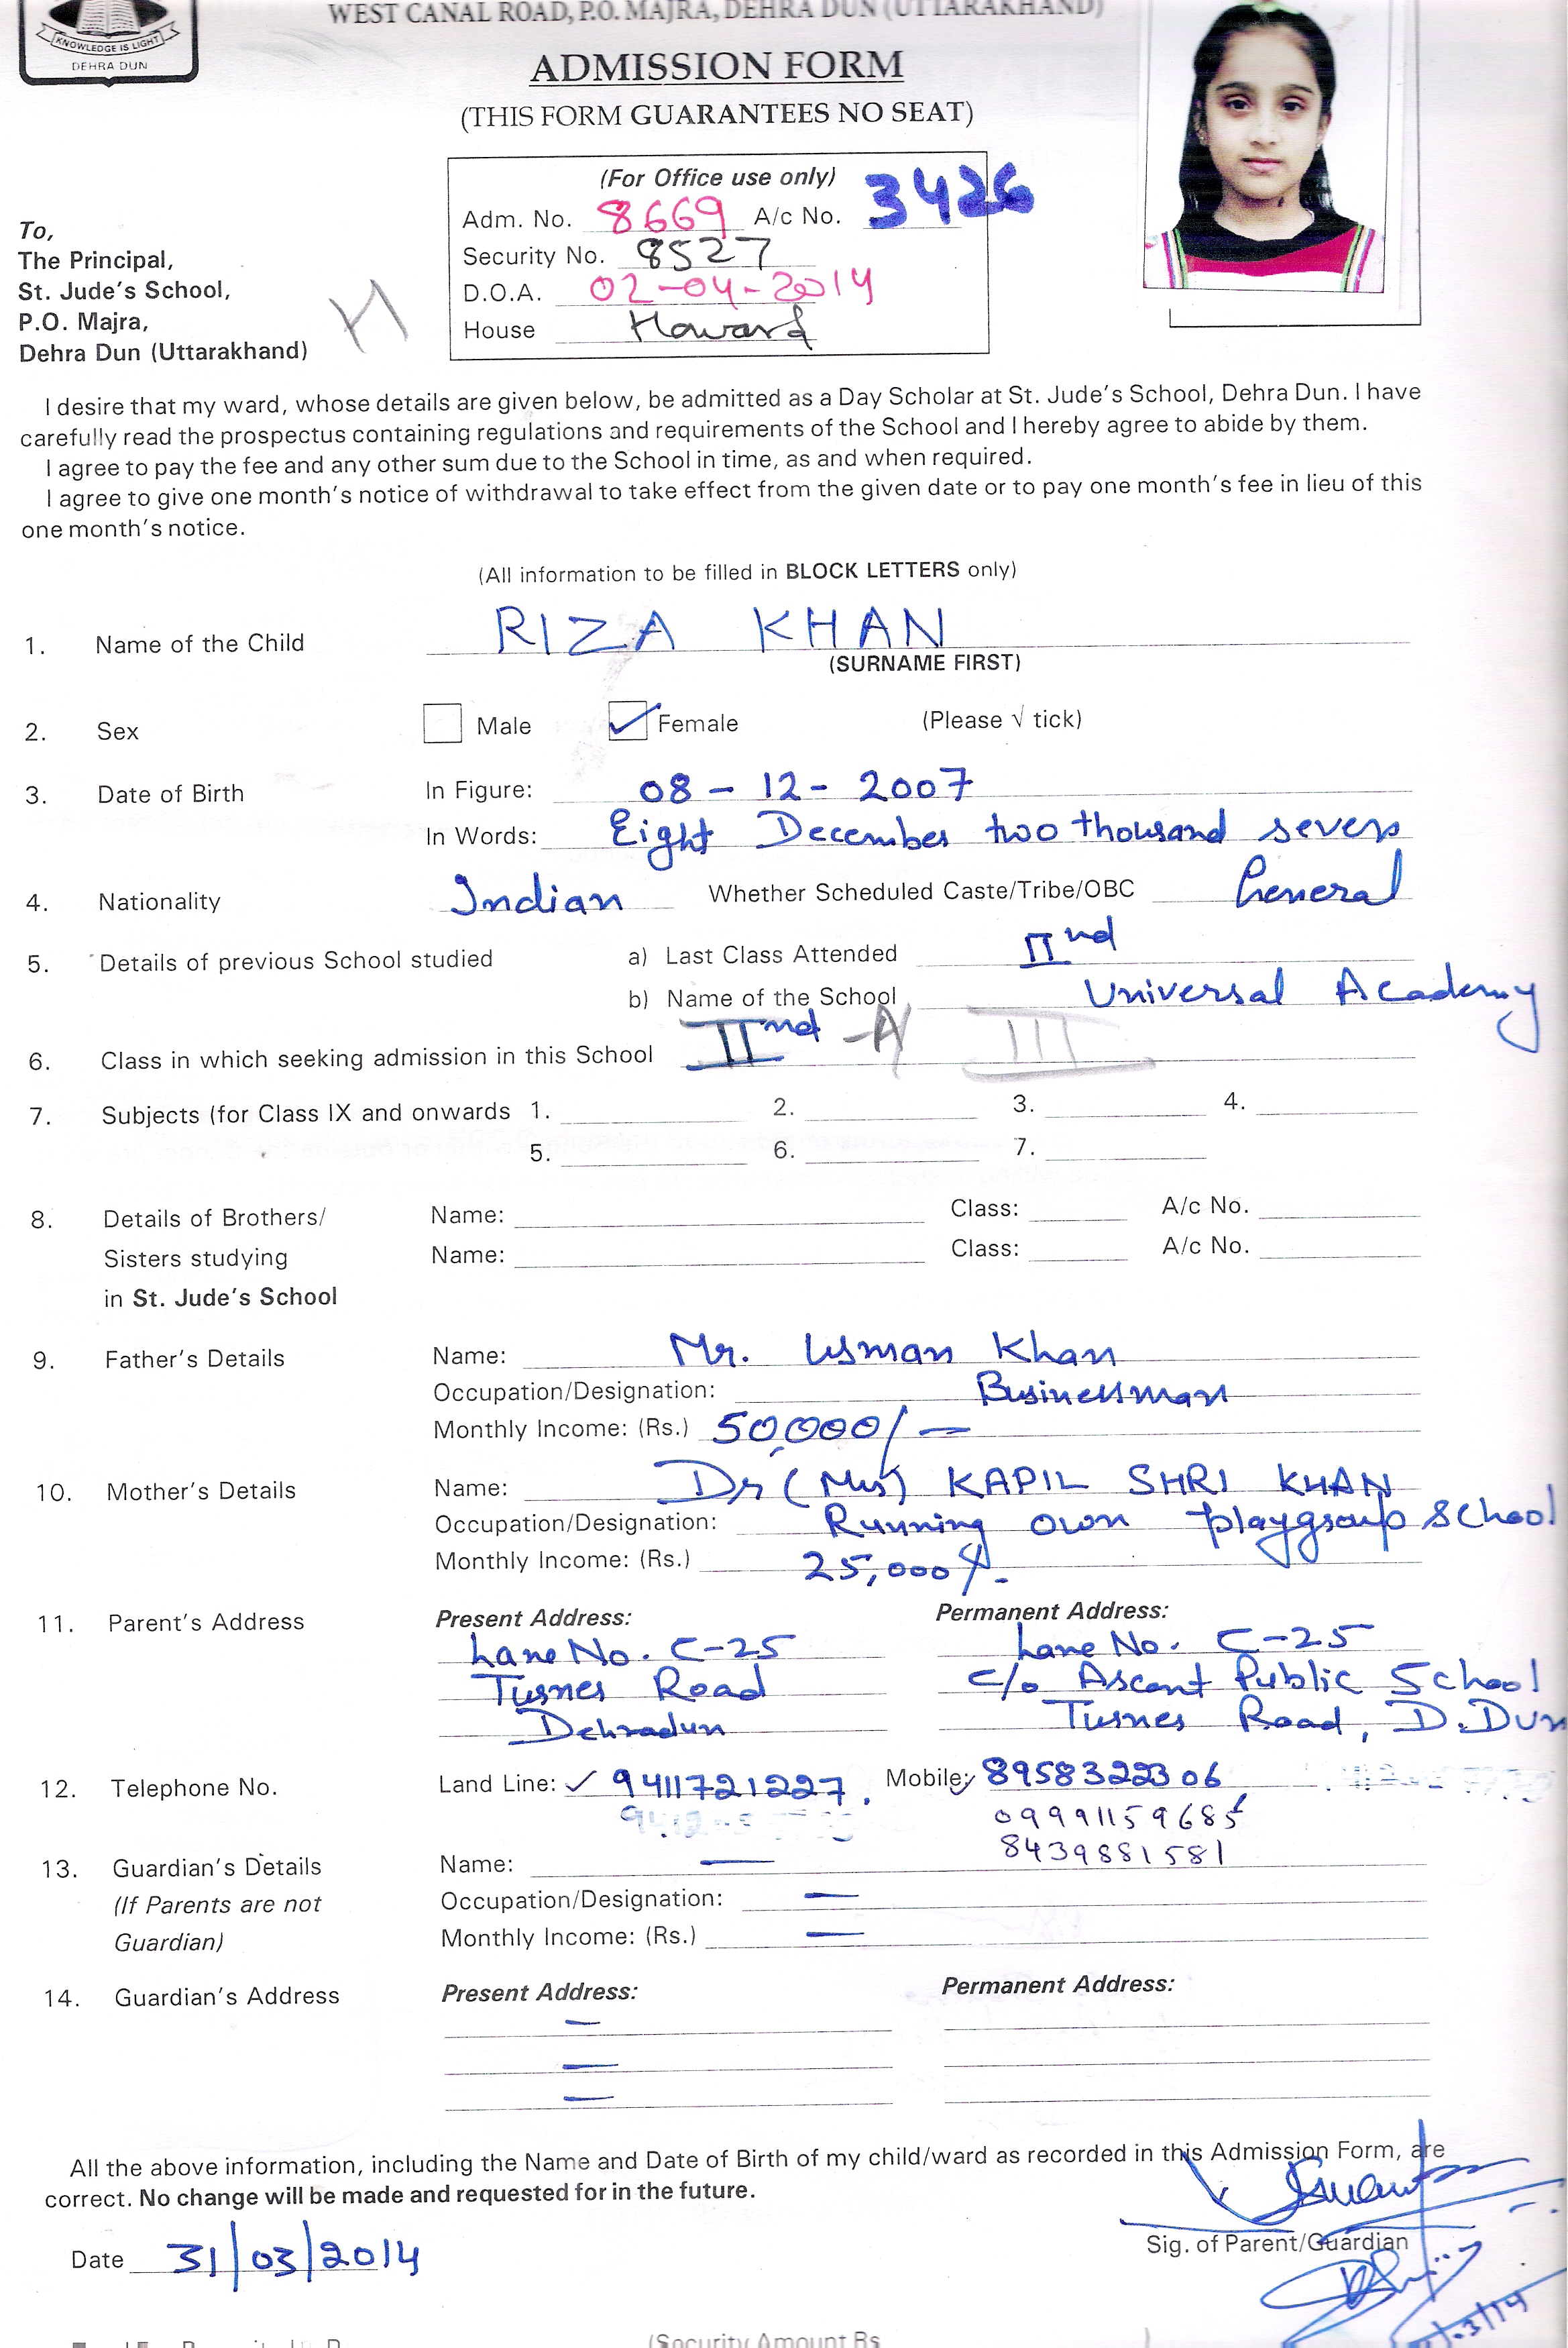 WEST CANAL ROAD, P.O. MAJRA, DEHRA DUN (UTTARAKHAND)
KNOWLEDGE IS LIGHT
DEHRA DUN
ADMISSION FORM
(THIS FORM GUARANTEES NO SEAT)
(For Office use only)
Adm. No. 8669 A/c No. 3426
Security No. 8527
D.O.A. 02-04-2014
House Howard
To,
The Principal,
St. Jude's School,
P.O. Majra,
Dehra Dun (Uttarakhand)
H
I desire that my ward, whose details are given below, be admitted as a Day Scholar at St. Jude's School, Dehra Dun. I have
carefully read the prospectus containing regulations and requirements of the School and I hereby agree to abide by them.
I agree to pay the fee and any other sum due to the School in time, as and when required.
I agree to give one month's notice of withdrawal to take effect from the given date or to pay one month's fee in lieu of this
one month's notice.
(All information to be filled in BLOCK LETTERS only)
1. Name of the Child RIZA KHAN
(SURNAME FIRST)
2. Sex Male Female (Please √ tick)
3. Date of Birth In Figure: 08 - 12 - 2007
In Words: Eight December two thousand seven
4. Nationality Indian Whether Scheduled Caste/Tribe/OBC General
5. Details of previous School studied a) Last Class Attended IInd
b) Name of the School Universal Academy
6. Class in which seeking admission in this School IInd -A III
7. Subjects (for Class IX and onwards 1. 2. 3. 4.
5. 6. 7.
8. Details of Brothers/ Name: Class: A/c No.
Sisters studying Name: Class: A/c No.
in St. Jude's School
9. Father's Details Name: Mr. Usman Khan
Occupation/Designation: Businessman
Monthly Income: (Rs.) 50,000/-
10. Mother's Details Name: Dr (Mrs) KAPIL SHRI KHAN
Occupation/Designation: Running own playgroup school
Monthly Income: (Rs.) 25,000/-
11. Parent's Address Present Address: Permanent Address:
Lane No. C-25 Lane No. C-25
Turner Road c/o Ascent Public School
Dehradun Turner Road, D.Dun
12. Telephone No. Land Line: ✓ 9411721227, Mobile: 8958322306
09991159685
8439881581
13. Guardian's Details Name: —
(If Parents are not Occupation/Designation: —
Guardian) Monthly Income: (Rs.) —
14. Guardian's Address Present Address: Permanent Address:
—
—
—
All the above information, including the Name and Date of Birth of my child/ward as recorded in this Admission Form, are
correct. No change will be made and requested for in the future.
Date 31/03/2014
Sig. of Parent/Guardian
(Security Amount Rs